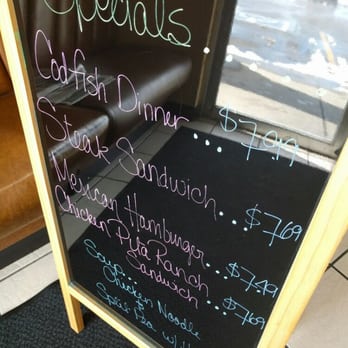 Specials
Codfish Dinner ... $7.99
Steak Sandwich... $7.69
Mexican Hamburger... $7.49
Chicken Pita Ranch
Sandwich ... $7.69
Soup:
Chicken Noodle
Split Pea w/